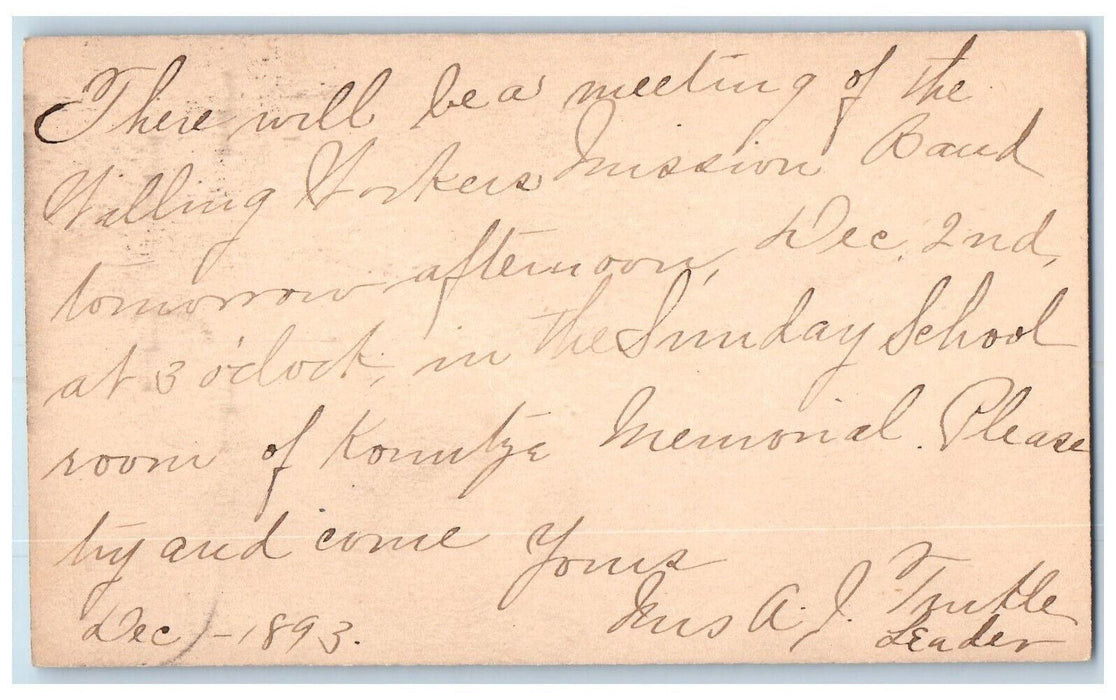 There will be a meeting of the
Willing Workers Mission Band
tomorrow afternoon, Dec. 2nd,
at 3 o'clock, in the Sunday School
room of Kountze Memorial. Please
try and come Yours
Mrs A. J.
Dec - 1893. Leader